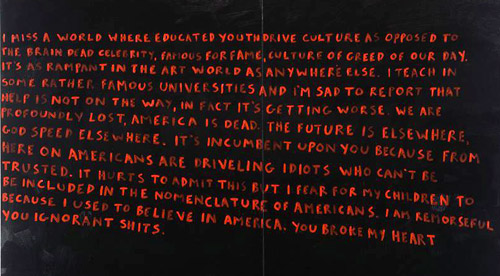 I MISS A WORLD WHERE EDUCATED YOUTH DRIVE CULTURE AS OPPOSED TO
THE BRAIN DEAD CELEBRITY, FAMOUS FOR FAME, CULTURE OF GREED OF OUR DAY.
IT'S AS RAMPANT IN THE ART WORLD AS ANYWHERE ELSE. I TEACH IN
SOME RATHER FAMOUS UNIVERSITIES AND I'M SAD TO REPORT THAT
HELP IS NOT ON THE WAY, IN FACT IT'S GETTING WORSE. WE ARE
PROFOUNDLY LOST, AMERICA IS DEAD. THE FUTURE IS ELSEWHERE,
GOD SPEED ELSEWHERE. IT'S INCUMBENT UPON YOU BECAUSE FROM
HERE ON AMERICANS ARE DRIVELING IDIOTS WHO CAN'T BE
TRUSTED. IT HURTS TO ADMIT THIS BUT I FEAR FOR MY CHILDREN TO
BE INCLUDED IN THE NOMENCLATURE OF AMERICANS. I AM REMORSEFUL
BECAUSE I USED TO BELIEVE IN AMERICA. YOU BROKE MY HEART
YOU IGNORANT SHITS.